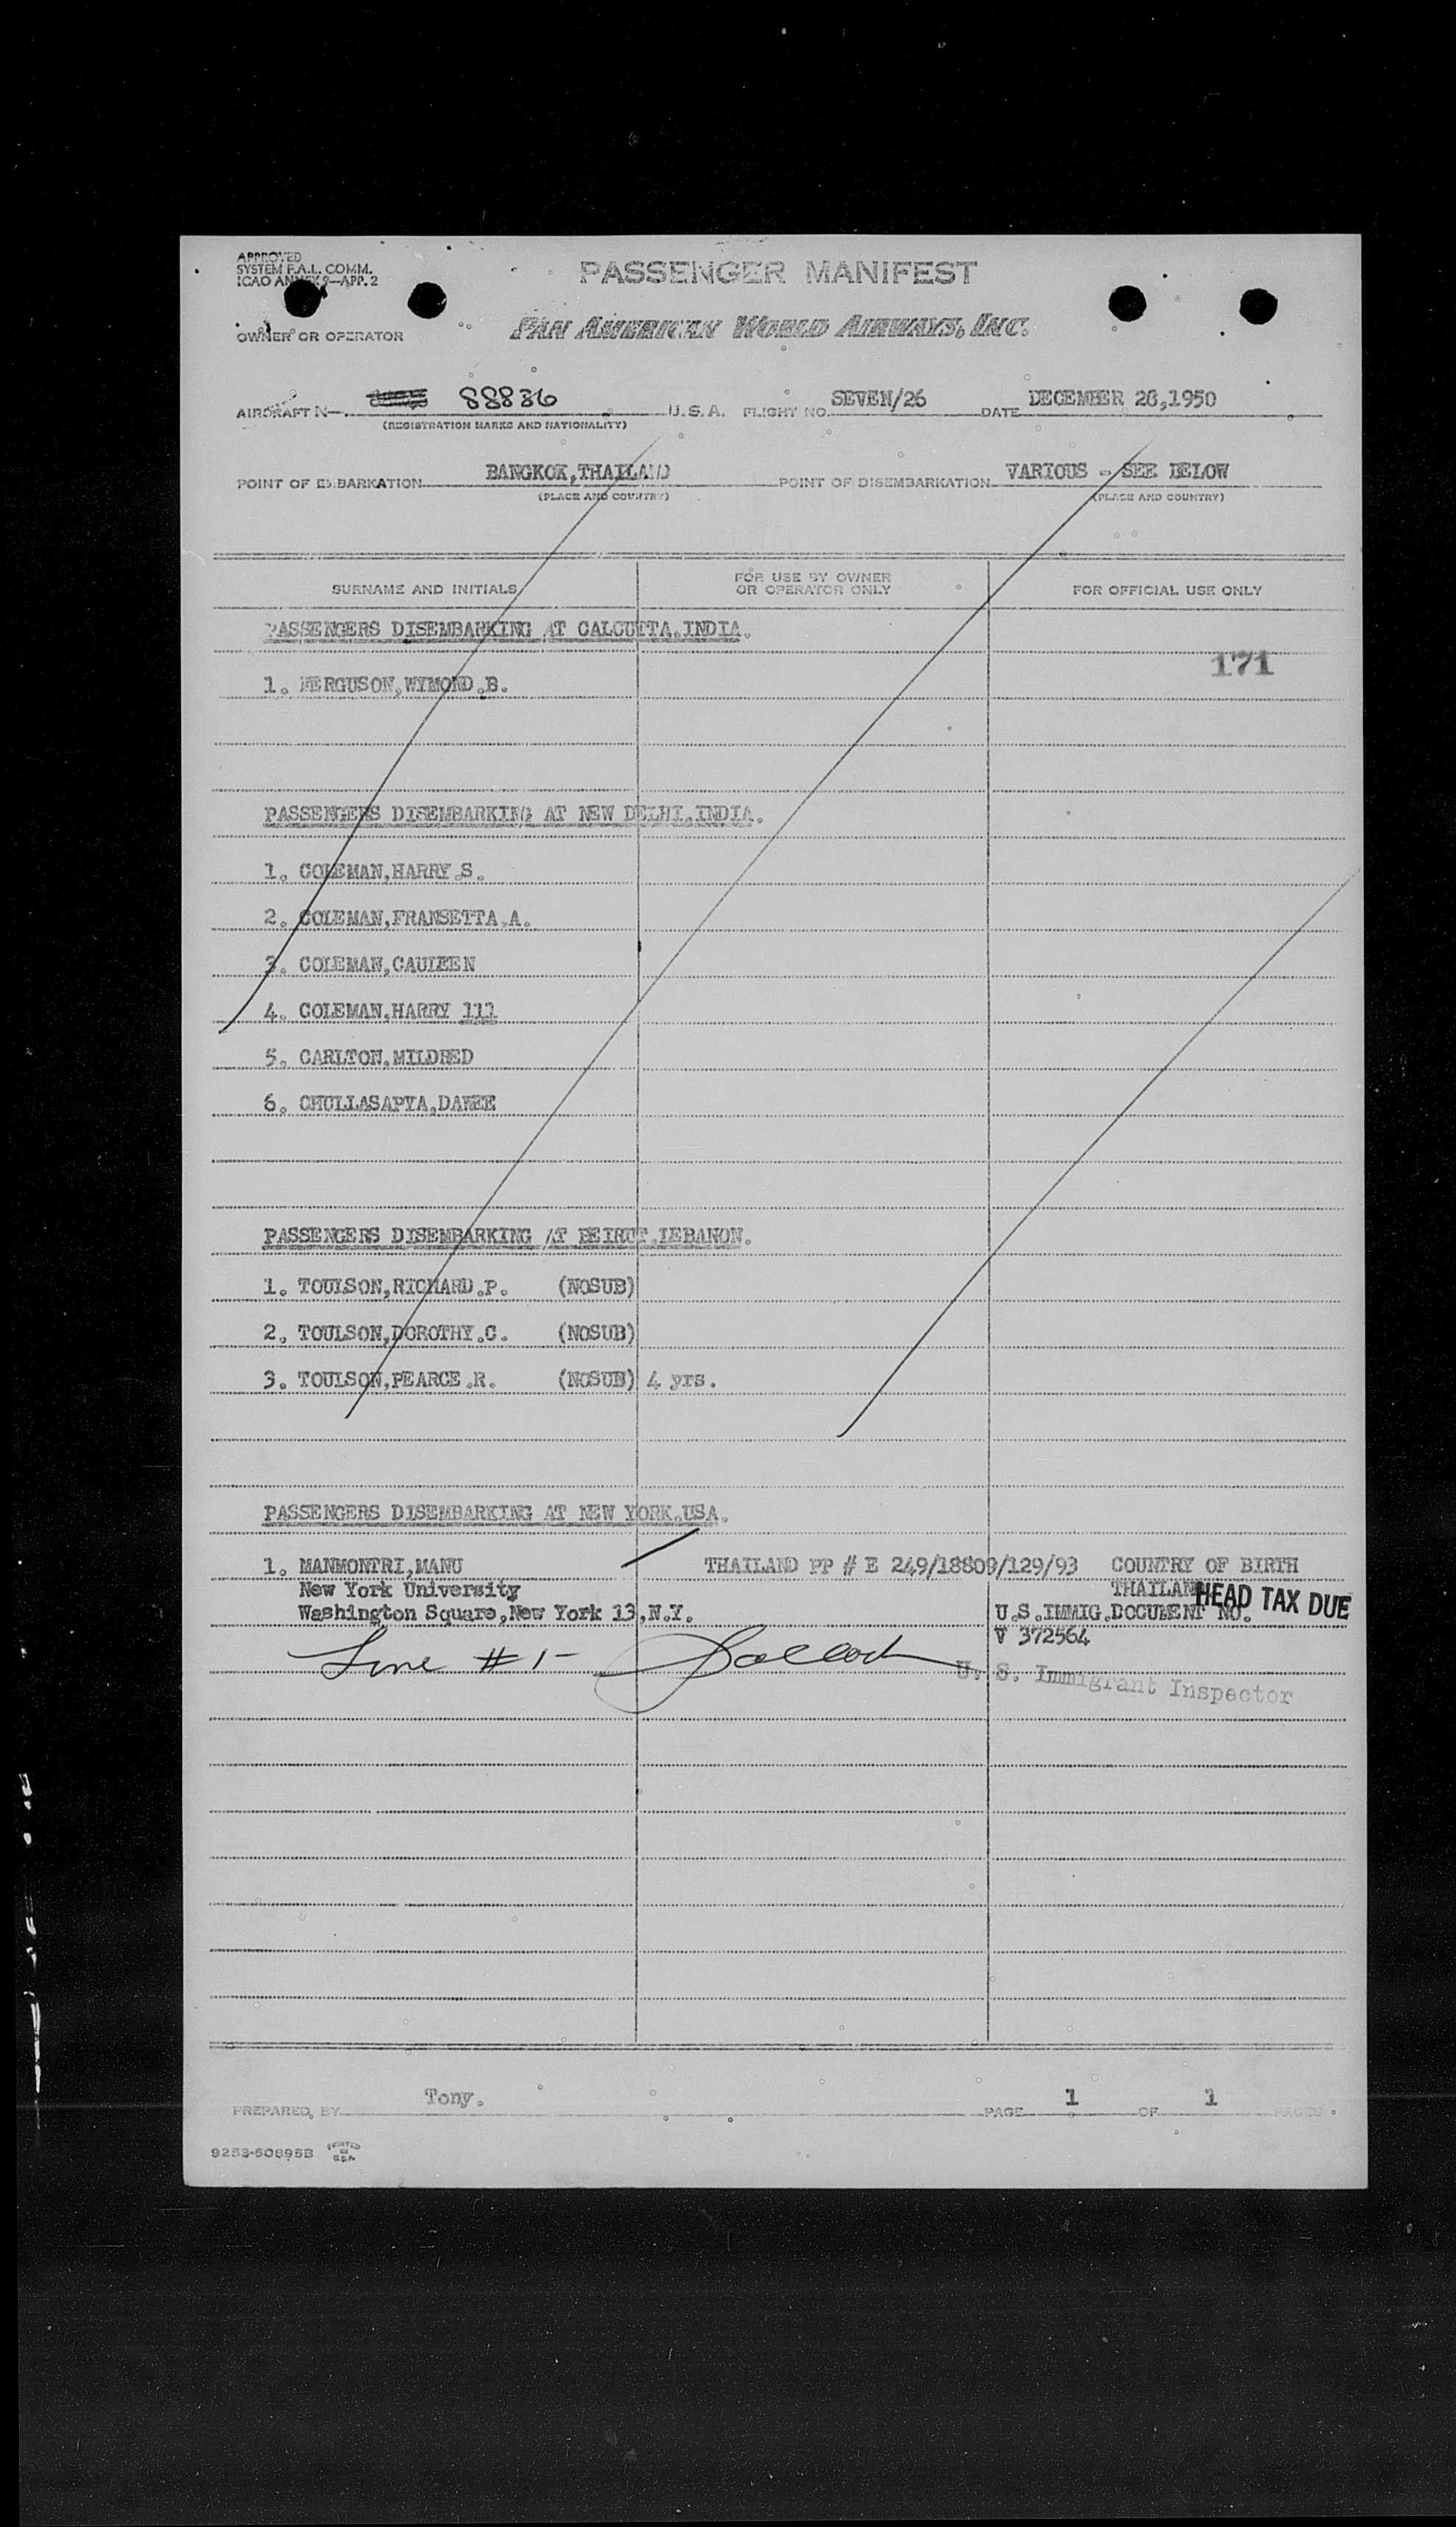 APPROVED
SYSTEM F.A.L. COMM.
ICAO ANNEX 9—APP. 2
PASSENGER MANIFEST
OWNER OR OPERATOR
PAN AMERICAN WORLD AIRWAYS, INC.
AIRCRAFT N— 88836 U.S.A. FLIGHT NO. SEVEN/26 DATE DECEMBER 28,1950
(REGISTRATION MARKS AND NATIONALITY)
POINT OF EMBARKATION BANGKOK,THAILAND POINT OF DISEMBARKATION VARIOUS - SEE BELOW
(PLACE AND COUNTRY) (PLACE AND COUNTRY)
SURNAME AND INITIALS FOR USE BY OWNER OR OPERATOR ONLY FOR OFFICIAL USE ONLY
PASSENGERS DISEMBARKING AT CALCUTTA,INDIA.
171
1. FERGUSON,WYMOND.B.
PASSENGERS DISEMBARKING AT NEW DELHI,INDIA.
1. COLEMAN,HARRY.S.
2. COLEMAN,FRANSETTA.A.
3. COLEMAN,CAULEEN
4. COLEMAN,HARRY 111
5. CARLTON,MILDRED
6. CHULLASAPYA,DAWEE
PASSENGERS DISEMBARKING AT BEIRUT,LEBANON.
1. TOULSON,RICHARD.P. (NOSUB)
2. TOULSON,DOROTHY.C. (NOSUB)
3. TOULSON,PEARCE.R. (NOSUB) 4 yrs.
PASSENGERS DISEMBARKING AT NEW YORK,USA.
1. MANMONTRI,MANU THAILAND PP # E 249/18809/129/93 COUNTRY OF BIRTH
New York University THAILAND HEAD TAX DUE
Washington Square,New York 13,N.Y. U.S.IMMIG.DOCUMENT NO.
V 372564
Line #1-
U. S. Immigrant Inspector
PREPARED BY Tony. PAGE 1 OF 1 PAGES
9253-50895B PRINTED IN U.S.A.